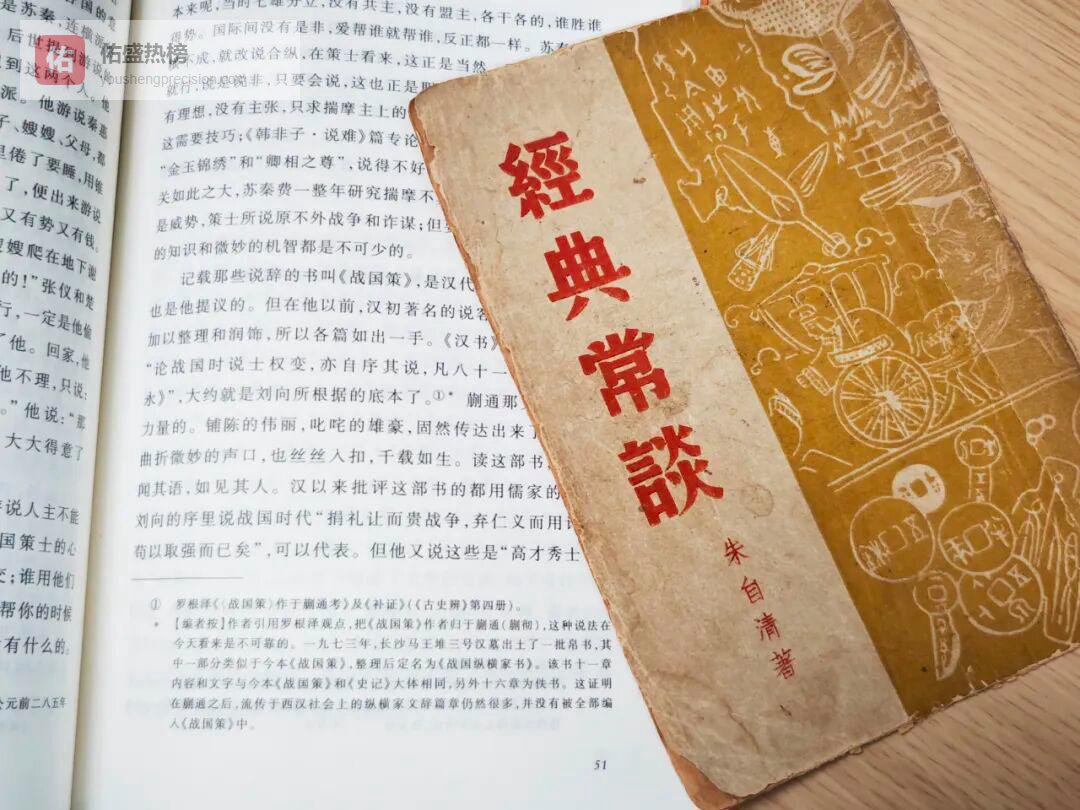 佑
佑盛热榜
youshengprecision.com
到这两个人。他
派。他游说秦惠
子、嫂嫂、父母,都
里倦了要睡,用锥
了,便出来游说
又有势又有钱。
嫂爬在地下谢
的!”张仪和楚
行,一定是他偷
了他。回家,他
他不理,只说:
。”他说:“那
大大得意了
说人主不能
国策士的心
;谁用他们
帮你的时候
有什么的。
公元前二八五年
本来呢,当时七雄分立,没有共主,没有盟主,各干各的,谁胜谁
得势。国际间没有是非,爱帮谁就帮谁,反正都一样。苏秦
不成,就改说合纵,在策士看来,这正是当然
就行,说是说非,只要会说,这也正是
有理想,没有主张,只求揣摩主上的
这需要技巧;《韩非子·说难》篇专论
“金玉锦绣”和“卿相之尊”,说得不好
关如此之大,苏秦费一整年研究揣摩不
是威势,策士所说原不外战争和诈谋;但
的知识和微妙的机智都是不可少的。
记载那些说辞的书叫《战国策》,是汉代
也是他提议的。但在他以前,汉初著名的说客
加以整理和润饰,所以各篇如出一手。《汉书》
“论战国时说士权变,亦自序其说,凡八十一
永》”,大约就是刘向所根据的底本了。①* 蒯通那
力量的。铺陈的伟丽,叱咤的雄豪,固然传达出来了
曲折微妙的声口,也丝丝入扣,千载如生。读这部书
闻其语,如见其人。汉以来批评这部书的都用儒家的
刘向的序里说战国时代“捐礼让而贵战争,弃仁义而用
苟以取强而已矣”,可以代表。但他又说这些是“高才秀士
① 罗根泽《〈战国策〉作于蒯通考》及《补证》(《古史辨》第四册)。
* 【编者按】作者引用罗根泽观点,把《战国策》作者归于蒯通(蒯彻),这种说法在
今天看来是不可靠的。一九七三年,长沙马王堆三号汉墓出土了一批帛书,其
中一部分类似于今本《战国策》,整理后定名为《战国纵横家书》。该书十一章
内容和文字与今本《战国策》和《史记》大体相同,另外十六章为佚书。这证明
在蒯通之后,流传于西汉社会上的纵横家文辞篇章仍然很多,并没有被全部编
入《战国策》中。
51
經典常談
朱自清著